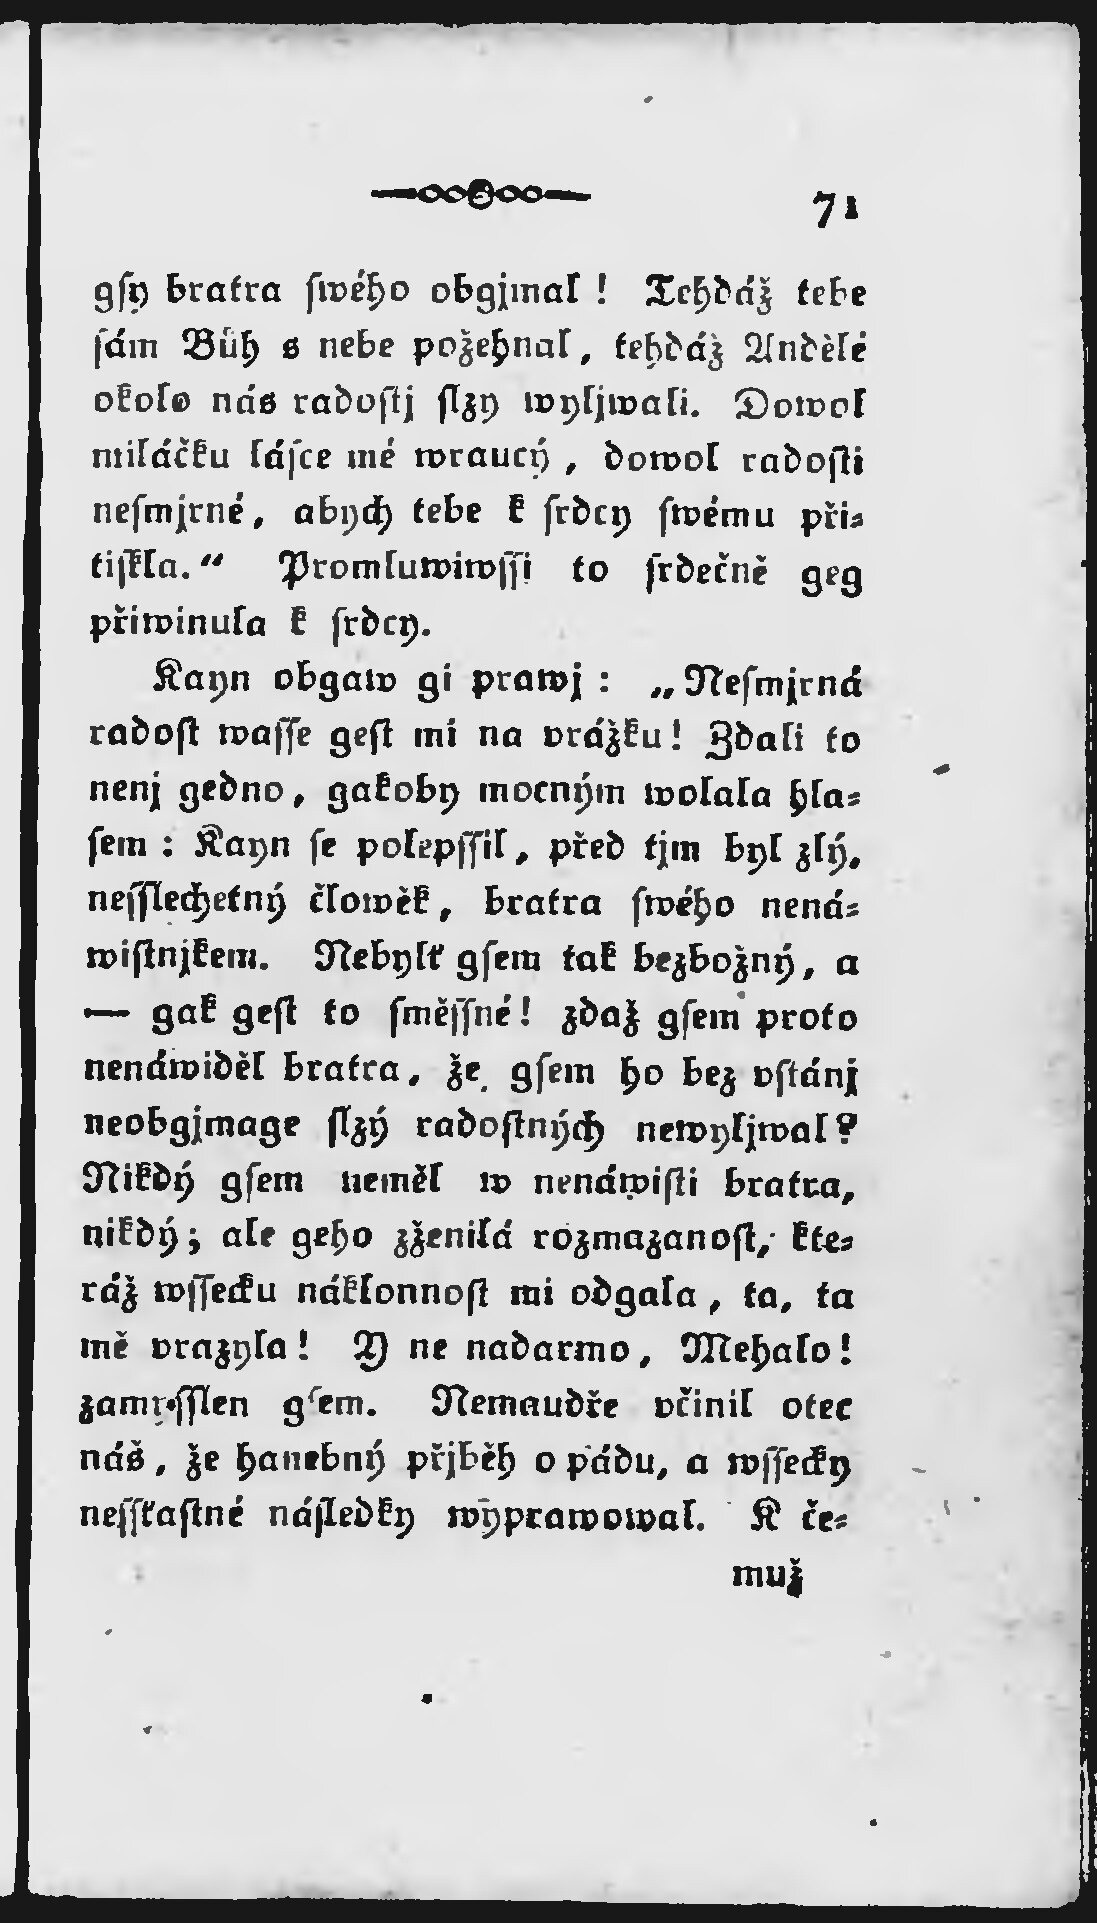 71
gſy bratra ſwého obgjmal! Tehdáž tebe
ſám Bůh s nebe požehnal, tehdáž Andělé
okolo nás radoſtj ſlzy wyljwali. Dowol
miláčku láſce mé wraucý, dowol radoſti
neſmjrné, abych tebe k ſrdcy ſwému při⸗
tiſkla.“ Promluwiwſſi to ſrdečně geg
přiwinula k ſrdcy.
Kayn obgaw gi prawj: „Neſmjrná
radoſt waſſe geſt mi na vrážku! Zdali to
nenj gedno, gakoby mocným wolala hla⸗
ſem: Kayn ſe polepſſil, před tjm byl zlý,
neſſlechetný člowěk, bratra ſwého nená⸗
wiſtnjkem. Nebylť gſem tak bezbožný, a
— gak geſt to ſměſſné! zdaž gſem proto
nenáwiděl bratra, že gſem ho bez vſtánj
neobgjmage ſlzý radoſtných newyljwal?
Nikdý gſem neměl w nenáwiſti bratra,
nikdý; ale geho zženilá rozmazanoſt, kte⸗
ráž wſſecku náklonnoſt mi odgala, ta, ta
mě vrazyla! Y ne nadarmo, Mehalo!
zamyſſlen gſem. Nemaudře včinil otec
náš, že hanebný přjběh o pádu, a wſſecky
neſſťaſtné náſledky wyprawowal. K če⸗
muž